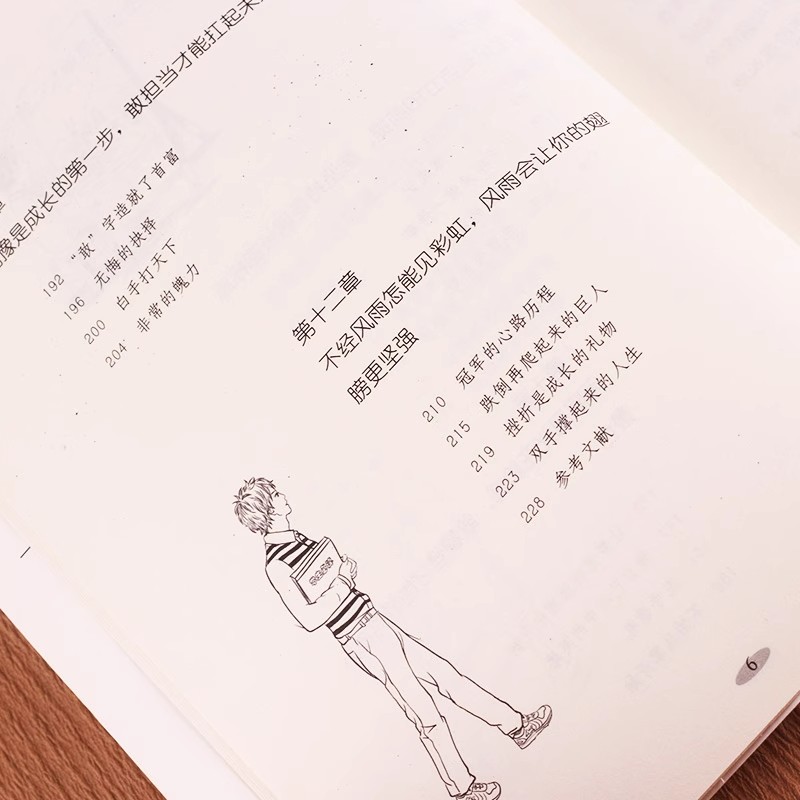 像是成长的第一步，敢担当才能扛起未
192 “敢”字造就了首富
196 无悔的抉择
200 白手打天下
204 非常的魄力
第十二章
不经风雨怎能见彩虹，风雨会让你的翅
膀更坚强
210 冠军的心路历程
215 跌倒再爬起来的巨人
219 挫折是成长的礼物
223 双手撑起来的人生
228 参考文献
6